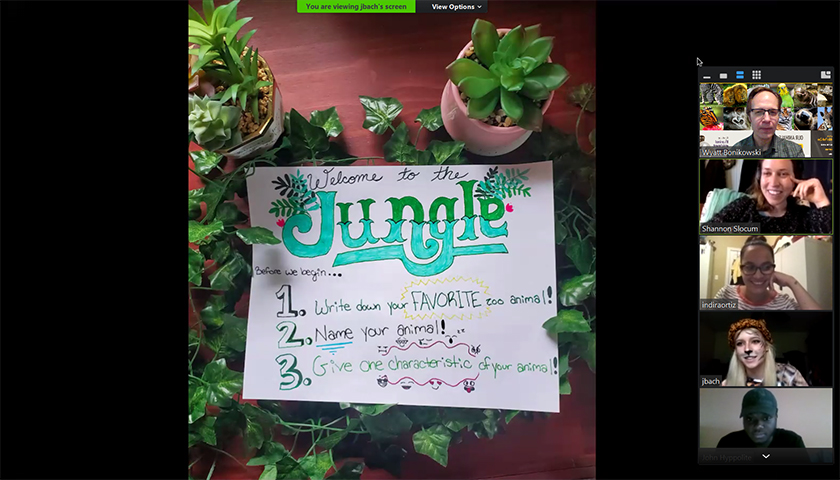 You are viewing jbach's screen
View Options
Welcome to the
Jungle
Before we begin...
1. Write down your FAVORITE zoo animal!
2. Name your animal! zz
3. Give one characteristic of your animal!
Wyatt Bonikowski
Shannon Slocum
indiraortiz
jbach